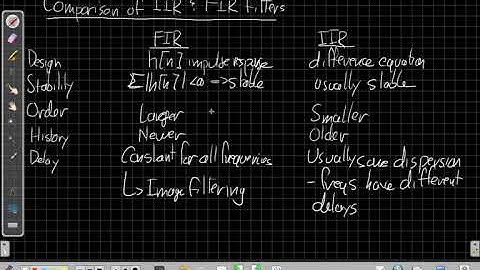 Comparison of IIR & FIR Filters
FIR IIR
Design h[n] impulse response difference equation
Stability Σ|h[n]|<∞ => stable usually stable
Order Larger Smaller
History Newer Older
Delay Constant for all frequencies Usually some dispersion
↳ Image filtering - freqs have different
delays